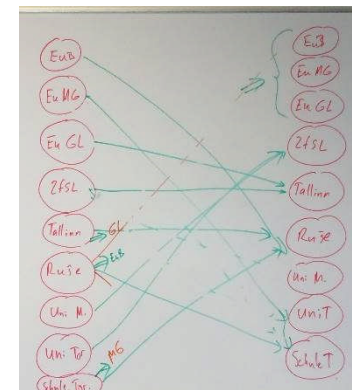 EuB
Eu MG
Eu GL
ZfSL
Tallinn
GL
EuB
Ruse
Uni M.
Uni Tar
MG
Schule Tar.
EuB
Eu MG
Eu GL
ZfSL
Tallinn
Ruse
Uni M.
Uni T
Schule T